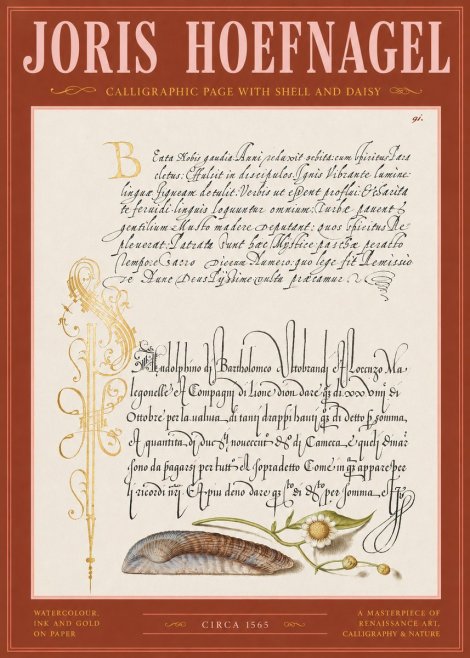 JORIS HOEFNAGEL
CALLIGRAPHIC PAGE WITH SHELL AND DAISY
91.
Beata Nobis gaudia Anni reduxit orbita: cum spiritus Para
cletus: Effulsit in discipulos. Ignis Vibrante lumine:
linguæ figuram detulit. Verbis ut essent proflui: Et Carita
te feruidi. linguis loquuntur omnium: Turbæ pauent
gentilium Musto madere Deputant: quos spiritus Re
pleuerat. Patrata sunt hæc Mystice paschæ peracto
tempore Sacro Dierum Numero: quo lege fit Remissio
te Nunc Deus piissime vultu præcamur
Bartholomeo Altobrandi & Lorenzo Ma
legonelle & Compagni di Lione dion dare
Ottobre per la valuta di tanti drappi hauti di detto somma,
A quantita di nouecento di Camera, e queli dinar
sono da pagarsi per tutto il sopradetto Come in appare per
ricordi E piu deno dare di per somma,
WATERCOLOUR,
INK AND GOLD
ON PAPER
CIRCA 1565
A MASTERPIECE OF
RENAISSANCE ART,
CALLIGRAPHY & NATURE